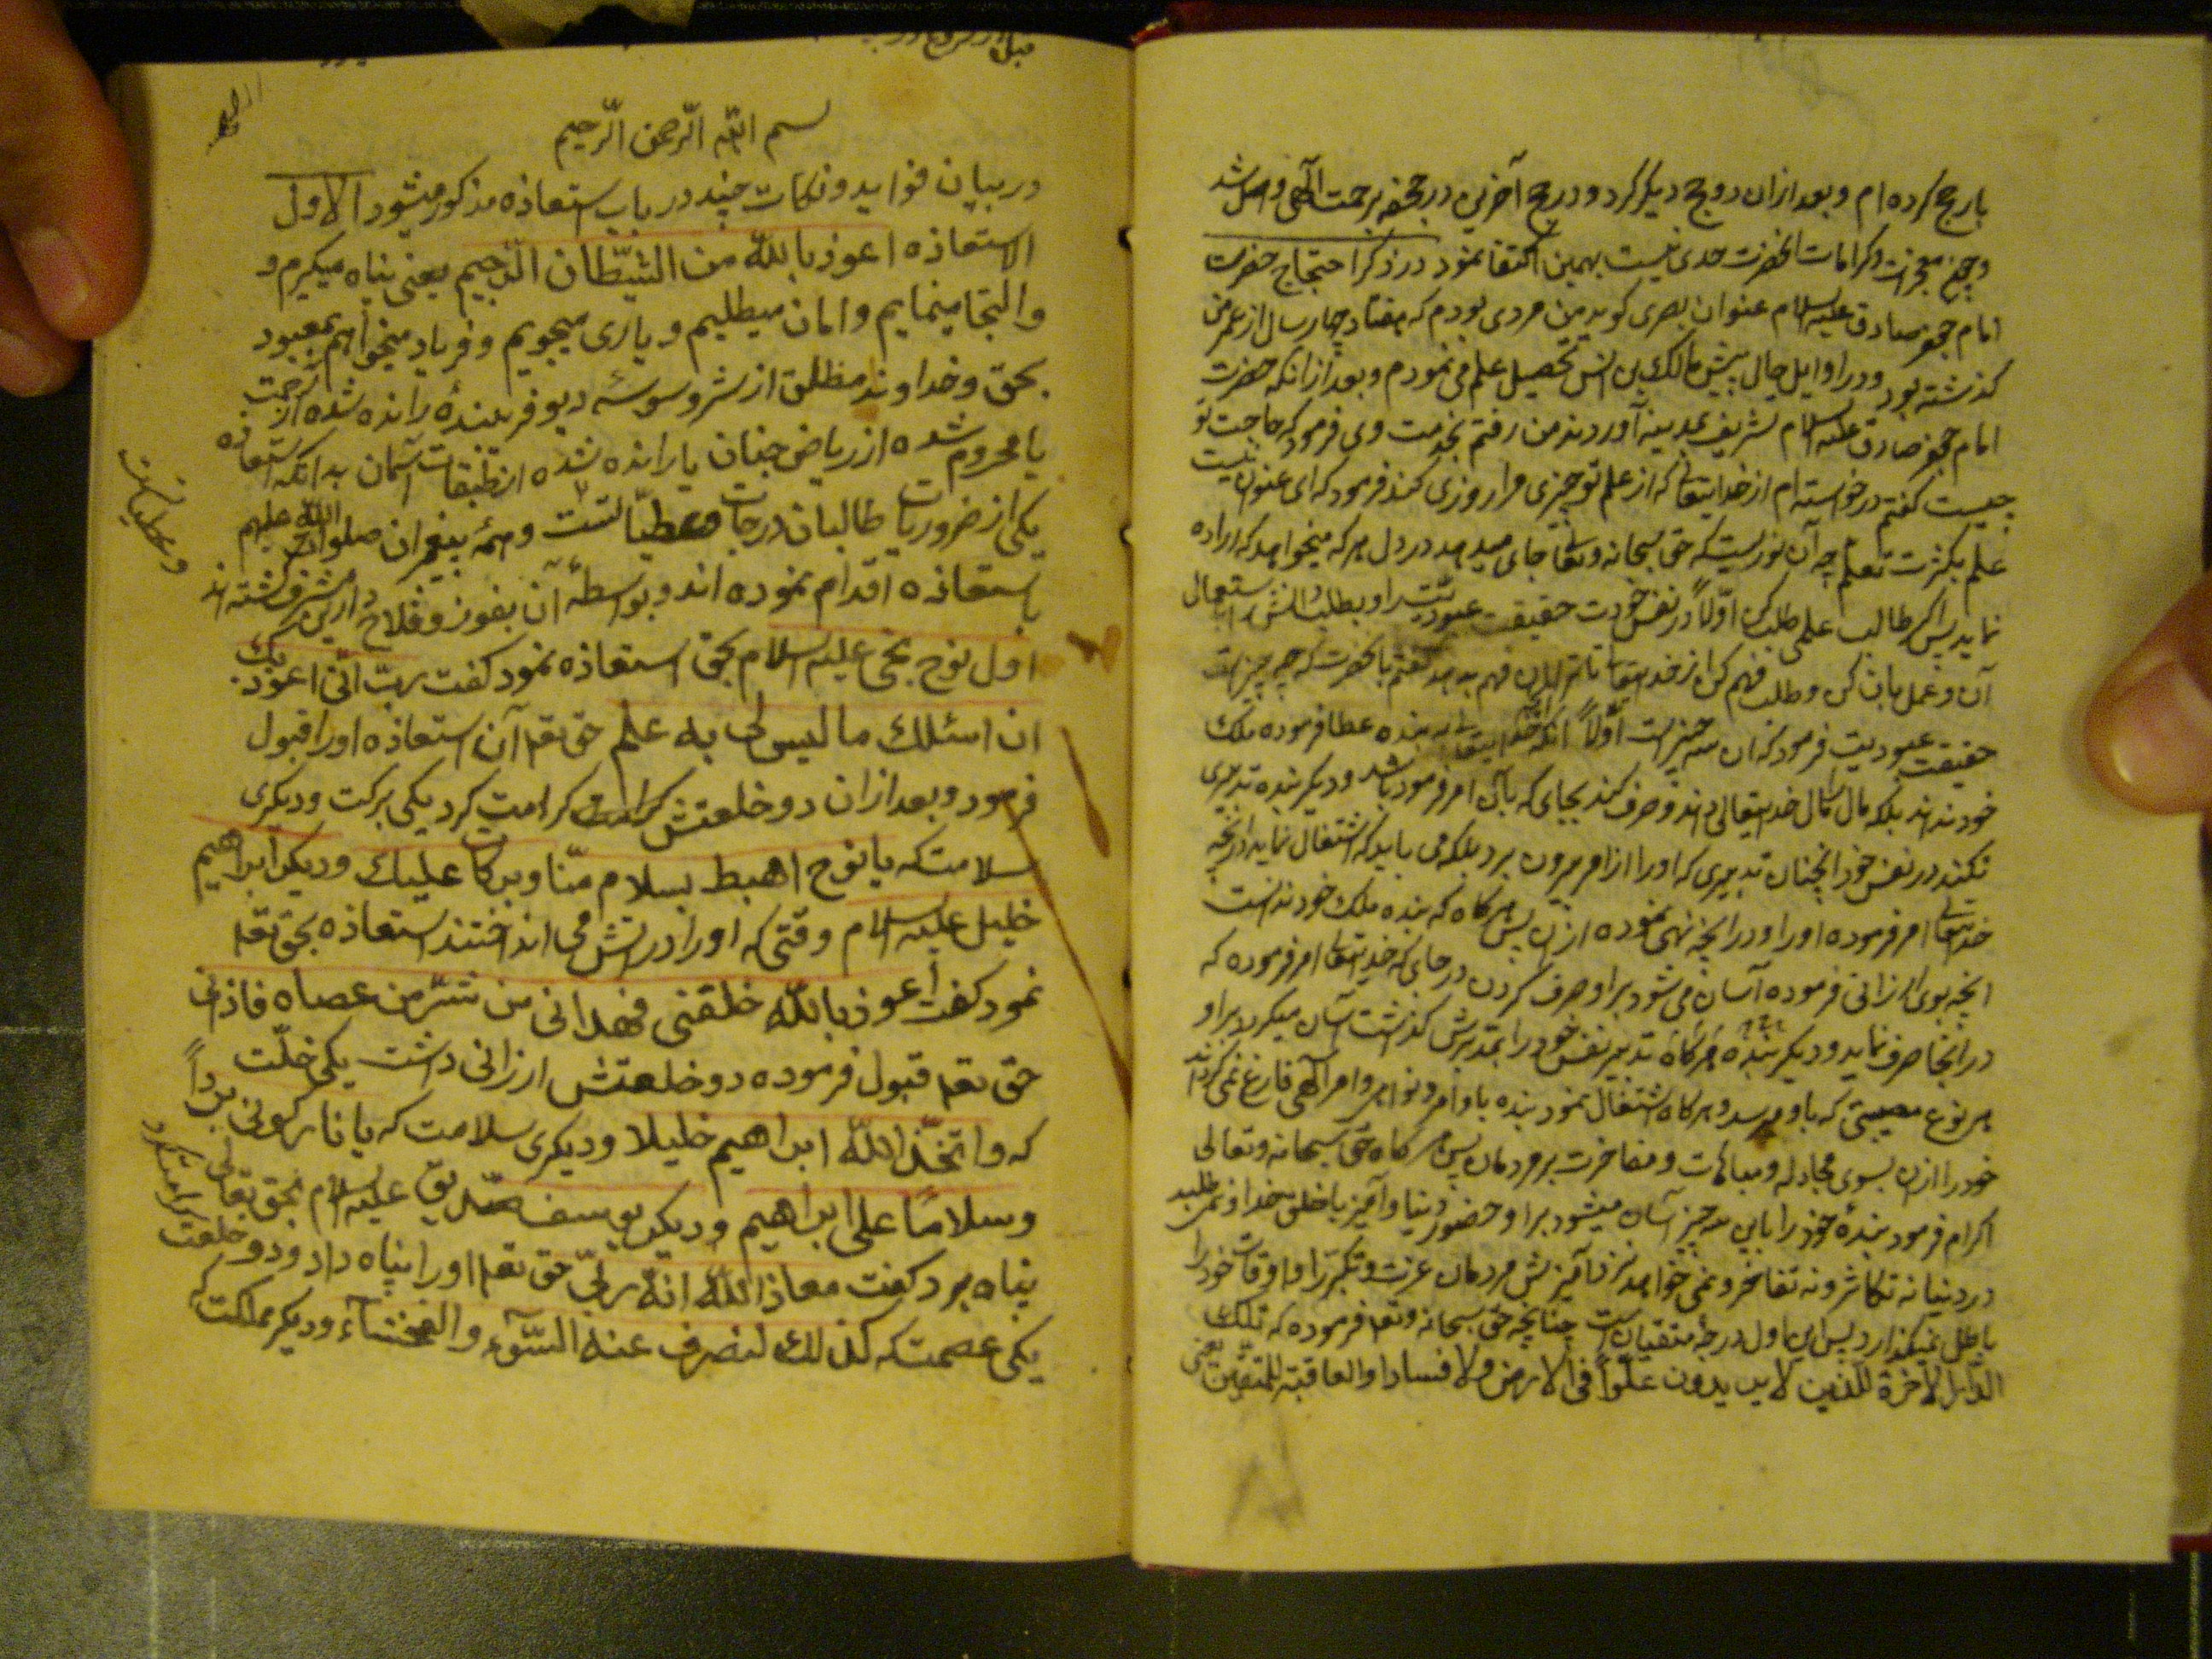 بار حج کرده‌ام و بعد ازان دو حج دیگر کرد و در حج آخرین در جحفه برحمت الهی واصل شد
و چون معجزات و کرامات انحضرت حدی نیست بهمین اکتفا نمود در ذکر احتجاج حضرت
امام جعفر صادق علیه السلام عنوان بصری کوید من مردی بودم که هفتاد چهار سال از عمر من
کذشته بود و در اوایل حال پیش مالک بن انس تحصیل علم می نمودم و بعد ازانکه حضرت
امام جعفر صادق علیه السلام تشریف بمدینه آوردند من رفتم بخدمت وی فرمود که حاجت تو
چیست کفتم درخواسته ام از خدایتعا که از علم تو چیزی مرا روزی کند فرمود که ای عنوان نیست
علم بکثرت تعلم چه آن نوریست که حق سبحانه وتعا جای میدهد در دل هر که میخواهد که اراده
نماید پس اکر طالب علمی طلب کن اولاً در نفس خودت حقیقت عبودیت را و بطلب دانش را باستعمال
آن و عمل بان کن و طلب فهم کن از خدایتعا تا ترا فهم بدهد کفتم بانحضرت که چه چیزست
حقیقت عبودیت فرمود که ان سه چیزست اولاً انکه خدایتعا به بنده عطا فرموده ملک
خود نداند بلکه مال را مال خدایتعالی داند و صرف کند بجای که بآن امر فرموده باشد و دیکر بنده تدبیری
نکند در نفس خود انچنان تدبیری که او را از امر بیرون برد بلکه می باید که اشتغال نماید در انچه
خدایتعا امر فرموده او را و در انچه نهی نموده ازان پس هر کاه که بنده ملک خود ندانست
انچه بوی ارزانی فرموده آسان می شود بر او صرف کردن در جای که خدایتعا امر فرموده که
در انجا صرف نماید و دیکر بنده هر کاه تدبیر نفس خود را بمدبرش کذاشت آسان میکردد بر او
هر نوع مصیبتی که باو میرسد و هر کاه اشتغال نمود بنده باوامر و نواهی الهی فارغ نمی کرداند
خود را ازان بسوی مجادله و مباهات و مفاخرت بر مردمان پس هر کاه حق سبحانه وتعالی
اکرام فرمود بندهٔ خود را باین سه چیز آسان میشود بر او حضور دنیا و آمیز با خلق خدا و نمی طلبد
در دنیا نه تکاثر و نه تفاخر و نمی خواهد از مردمان عزت و تکبر را و اوقات خود را
باطل نمیکذارد پس این اول درجهٔ متقیان است چنانچه حق سبحانه وتعه فرموده که تلک
الدار الاخرة للذین لا یریدون علوّاً فی الارض ولا فسادا والعاقبة للمتقین یعنی
بسم الله الرّحمن الرّحیم
در بیان فواید و نکات چند در باب استعاذه مذکور میشود الاول
الاستعاذه اعوذ بالله من الشیطان الرّجیم یعنی پناه میکیرم و
والتجا مینمایم و امان میطلبیم و یاری میجویم و فریاد میخواهیم بمعبود
بحق و خداوند مطلق از شر و وسوسهٔ دیو فریبندهٔ رانده شده از رحمت
یا محروم شده از ریاض جنان یا رانده شده از طبقات آسمان بدانکه استعاذه
یکی از ضروریات طالبان درجات و عطیات است و همه پیغمبران صلوات الله علیهم
باستعاذه اقدام نموده اند و بواسطهٔ آن بفوز و فلاح دارین مشرف کشته اند
اول نوح نجی علیه السلام بحق استعاذه نمود کفت ربّ انّی اعوذ بک
ان اسئلک ما لیس لی به علم حق تعه آن استعاذه او را قبول
فرمود و بعد ازان دو خلعتش کرامت کرد یکی برکت و دیکری
سلامت که یا نوح اهبط بسلام منّا وبرکات علیک و دیکر ابراهیم
خلیل علیه السلام وقتی که او را در آتش می انداختند استعاذه بحق تعه
نمود کفت اعوذ بالله خلقنی فهدانی من شرّ من عصاه فاذنی
حق تعه قبول فرموده دو خلعتش ارزانی داشت یکی خلّت
که واتخذ الله ابراهیم خلیلا و دیکری سلامت که یا نار کونی برداً
وسلامًا علی ابراهیم و دیکر یوسف صدیق علیه السلام بحق تعالی
پناه برد کفت معاذ الله انّه ربّی حق تعه او را پناه داد و دو خلعت
کرامت کرد
یکی عصمت که کذلک لنصرف عنه السّوء والفحشاء و دیکر مملکت که
و عطیات